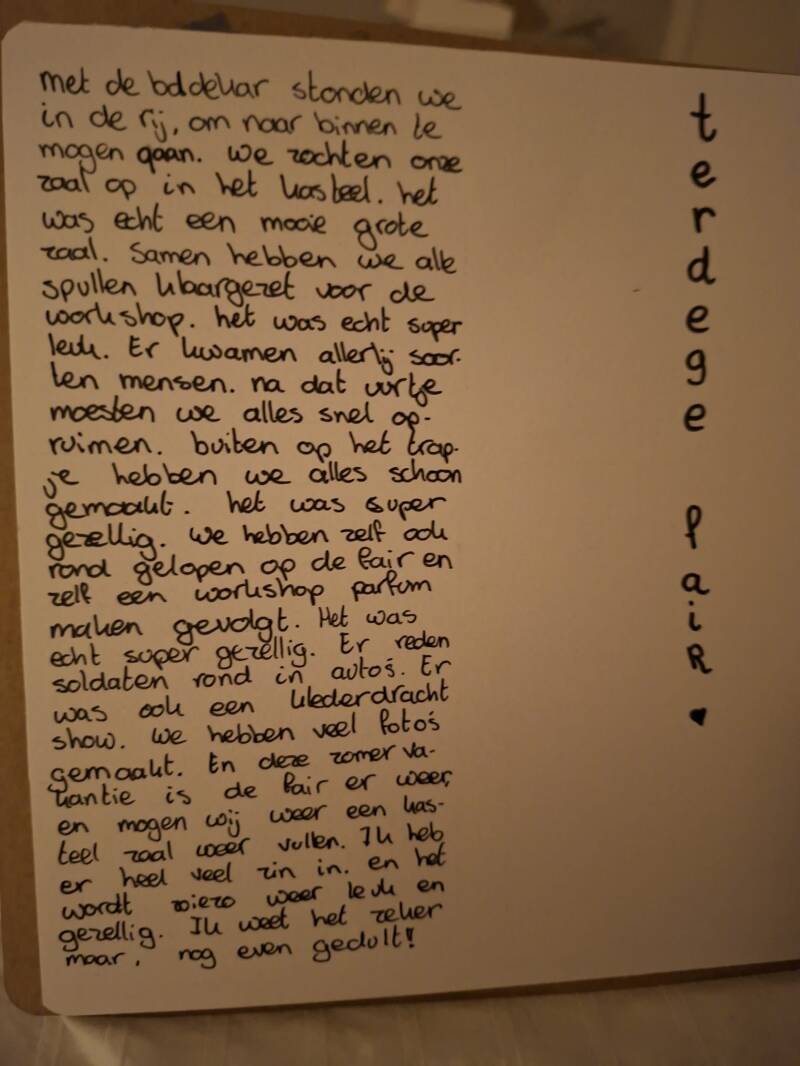 met de boldekar stonden we
in de rij, om naar binnen te
mogen gaan. We zochten onze
zaal op in het kasteel. het
was echt een mooie grote
zaal. Samen hebben we alle
spullen klaargezet voor de
workshop. het was echt super
leuk. Er kwamen allerlij soor-
ten mensen. na dat uurtje
moesten we alles snel op-
ruimen. buiten op het trap-
je hebben we alles schoon
gemaakt. het was super
gezellig. We hebben zelf ook
rond gelopen op de fair en
zelf een workshop parfum
maken gevolgt. Het was
echt super gezellig. Er reden
soldaten rond in auto's. Er
was ook een klederdracht
show. We hebben veel foto's
gemaakt. En deze zomer va-
kantie is de fair er weer,
en mogen wij weer een kas-
teel zaal weer vullen. Ik heb
er heel veel zin in. en het
wordt zowieso weer leuk en
gezellig. Ik weet het zeker
maar, nog even gedult!
terdege fair ♥